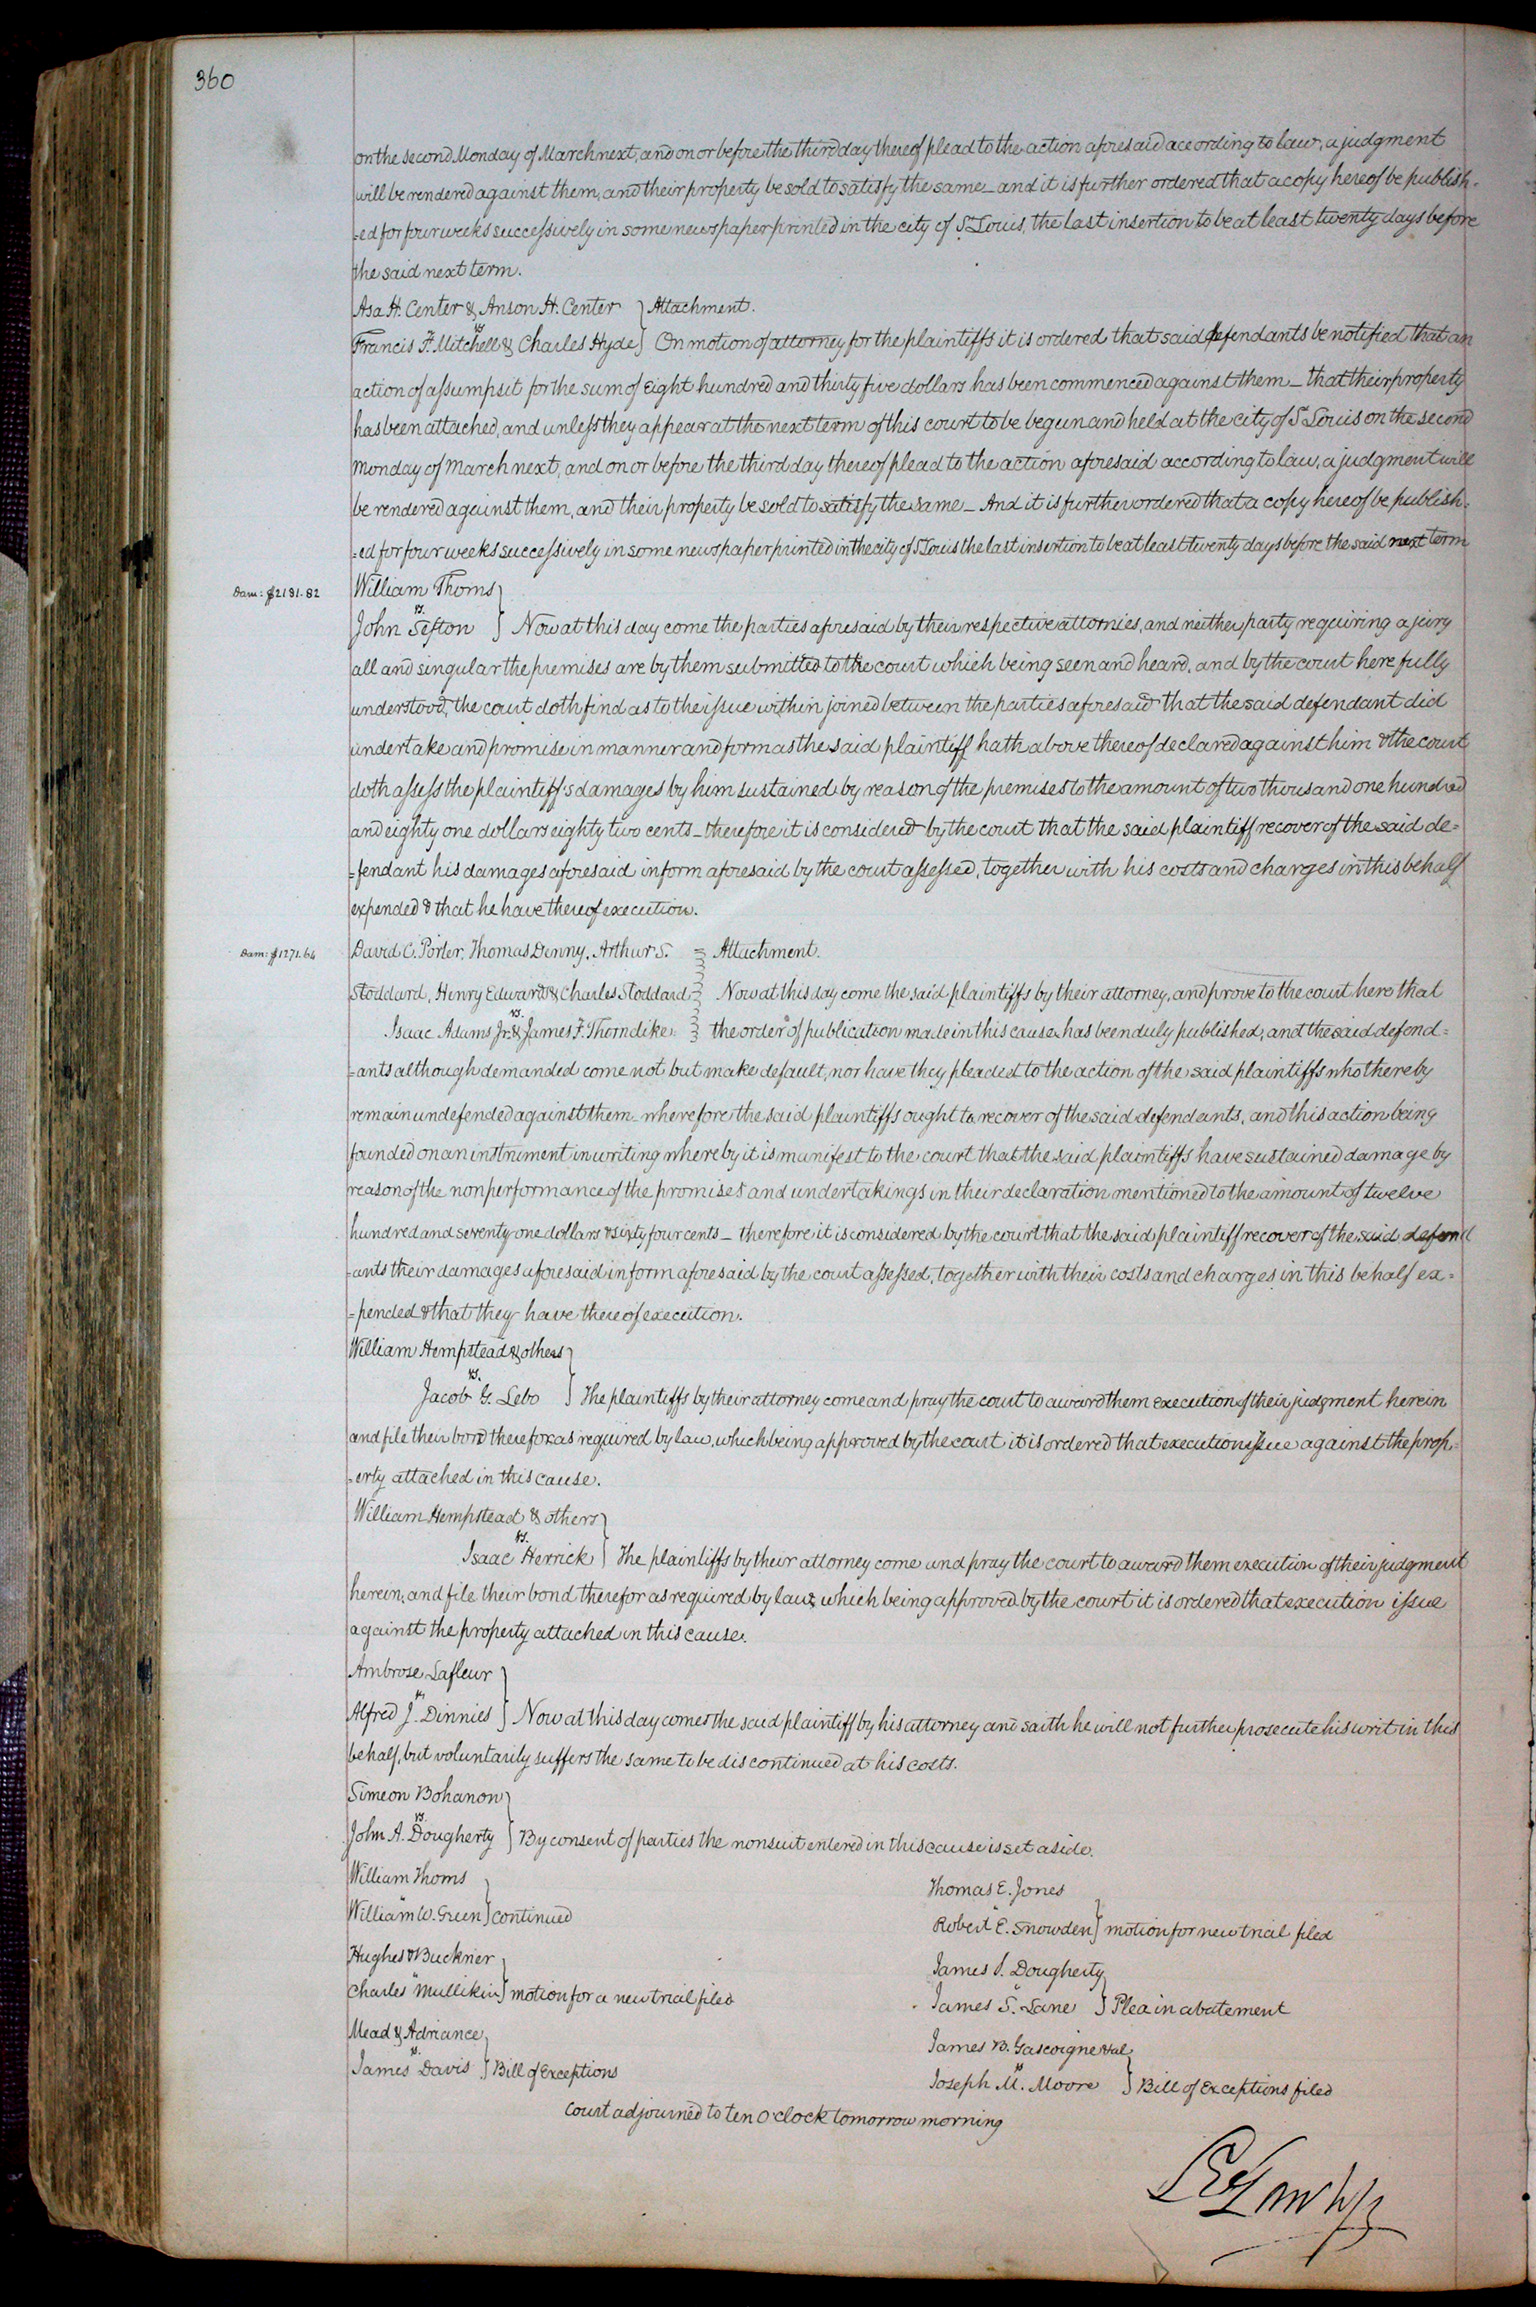 360
on the second Monday of March next, and on or before the third day thereof plead to the action aforesaid according to law, a judgment
will be rendered against them, and their property be sold to satisfy the same - and it is further ordered that a copy hereof be publish-
=ed for four weeks successively in some newspaper printed in the city of St. Louis, the last insertion to be at least twenty days before
the said next term.
Asa H. Center & Anson H. Center } Attachment.
vs
Francis F. Mitchell & Charles Hyde } On motion of attorney for the plaintiffs it is ordered that said defendants be notified that an
action of assumpsit for the sum of eight hundred and thirty five dollars has been commenced against them - that their property
has been attached, and unless they appear at the next term of this court to be begun and held at the city of St Louis on the second
Monday of March next, and on or before the third day thereof plead to the action aforesaid according to law, a judgment will
be rendered against them, and their property be sold to satisfy the same - And it is further ordered that a copy hereof be publish-
=ed for four weeks successively in some newspaper printed in the city of St Louis the last insertion to be at least twenty days before the said next term
Dam: $2181.82 William Thoms }
vs.
John Sefton } Now at this day come the parties aforesaid by their respective attornies, and neither party requiring a jury
all and singular the premises are by them submitted to the court which being seen and heard, and by the court here fully
understood, the court doth find as to the issue within joined between the parties aforesaid that the said defendant did
undertake and promise in manner and form as the said plaintiff hath above thereof declared against him & the court
doth assess the plaintiff's damages by him sustained by reason of the premises to the amount of two thousand one hundred
and eighty one dollars eighty two cents - therefore it is considered by the court that the said plaintiff recover of the said de=
=fendant his damages aforesaid in form aforesaid by the court assessed, together with his costs and charges in this behalf
expended & that he have thereof execution.
Dam: $1271.64 David C. Porter, Thomas Denny, Arthur S. } Attachment.
Stoddard, Henry Edwards & Charles Stoddard } Now at this day come the said plaintiffs by their attorney, and prove to the court here that
vs.
Isaac Adams Jr. & James F. Thorndike. } the order of publication made in this cause has been duly published, and the said defend=
=ants although demanded come not but make default, nor have they pleaded to the action of the said plaintiffs who thereby
remain undefended against them wherefore the said plaintiffs ought to recover of the said defendants, and this action being
founded on an instrument in writing whereby it is manifest to the court that the said plaintiffs have sustained damage by
reason of the nonperformance of the promises and undertakings in their declaration mentioned to the amount of twelve
hundred and seventy one dollars & sixty four cents - therefore it is considered by the court that the said plaintiff recover of the said defend
=ants their damages aforesaid in form aforesaid by the court assessed, together with their costs and charges in this behalf ex=
=pended & that they have thereof execution.
William Hempstead & others }
vs.
Jacob G. Lebo } The plaintiffs by their attorney come and pray the court to award them execution of their judgment herein
and file their bond therefor as required by law, which being approved by the court it is ordered that execution issue against the prop=
=erty attached in this cause.
William Hempstead & others }
vs.
Isaac Herrick } The plaintiffs by their attorney come and pray the court to award them execution of their judgment
herein, and file their bond therefor as required by law, which being approved by the court it is ordered that execution issue
against the property attached in this cause.
Ambrose Lafleur }
vs
Alfred J. Dinnies } Now at this day comes the said plaintiff by his attorney and saith he will not further prosecute his writ in this
behalf, but voluntarily suffers the same to be discontinued at his costs.
Simeon Bohanon }
vs.
John A. Dougherty } By consent of parties the nonsuit entered in this cause is set aside.
William Thoms
"
William W. Green } continued
Hughes & Buckner
"
Charles Mullikin } motion for a new trial filed
Mead & Adriance
vs.
James Davis } Bill of Exceptions
Thomas E. Jones
"
Robert E. Snowden } motion for new trial filed
James S. Dougherty
"
James S. Lane } Plea in abatement
James B. Gascoigne et al
vs
Joseph M. Moore } Bill of Exceptions filed
Court adjourned to ten O'clock tomorrow morning